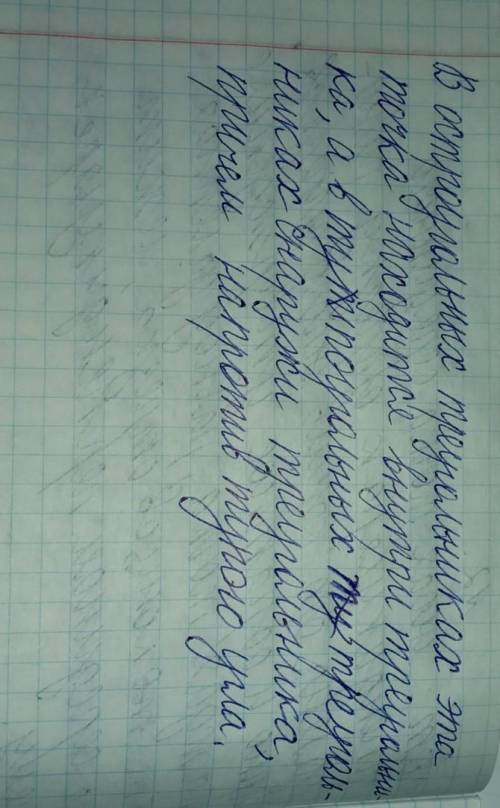 В остроугольных треугольниках эта
точка находится внутри треугольни-
ка, а в тупоугольных треуголь-
никах снаружи треугольника,
причем напротив тупого угла.